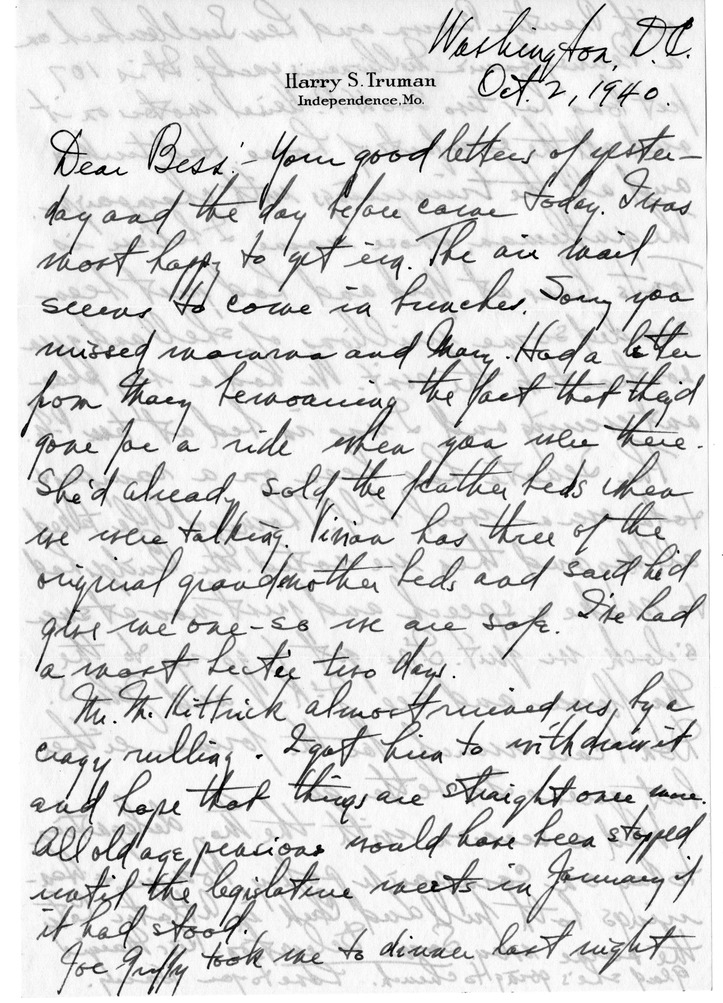 Washington, D.C.
Harry S. Truman
Independence, Mo.
Oct. 2, 1940.
Dear Bess:- Your good letters of yester-
day and the day before came today. I was
most happy to get em. The air mail
seems to come in bunches. Sorry you
missed mamma and Mary. Had a letter
from Mary bemoaning the fact that they'd
gone for a ride when you were there.
She'd already sold the feather beds when
we were talking. Vivian has three of the
original grandmother beds and said he'd
give me one-so we are safe. I've had
a most hectic two days.
Mr. McKittrick almost ruined us by a
crazy rulling. I got him to withdraw it
and hope that things are straight once more.
All old age pensions would have been stopped
until the legislative meets in January if
it had stood.
Joe Guffy took me to dinner last night